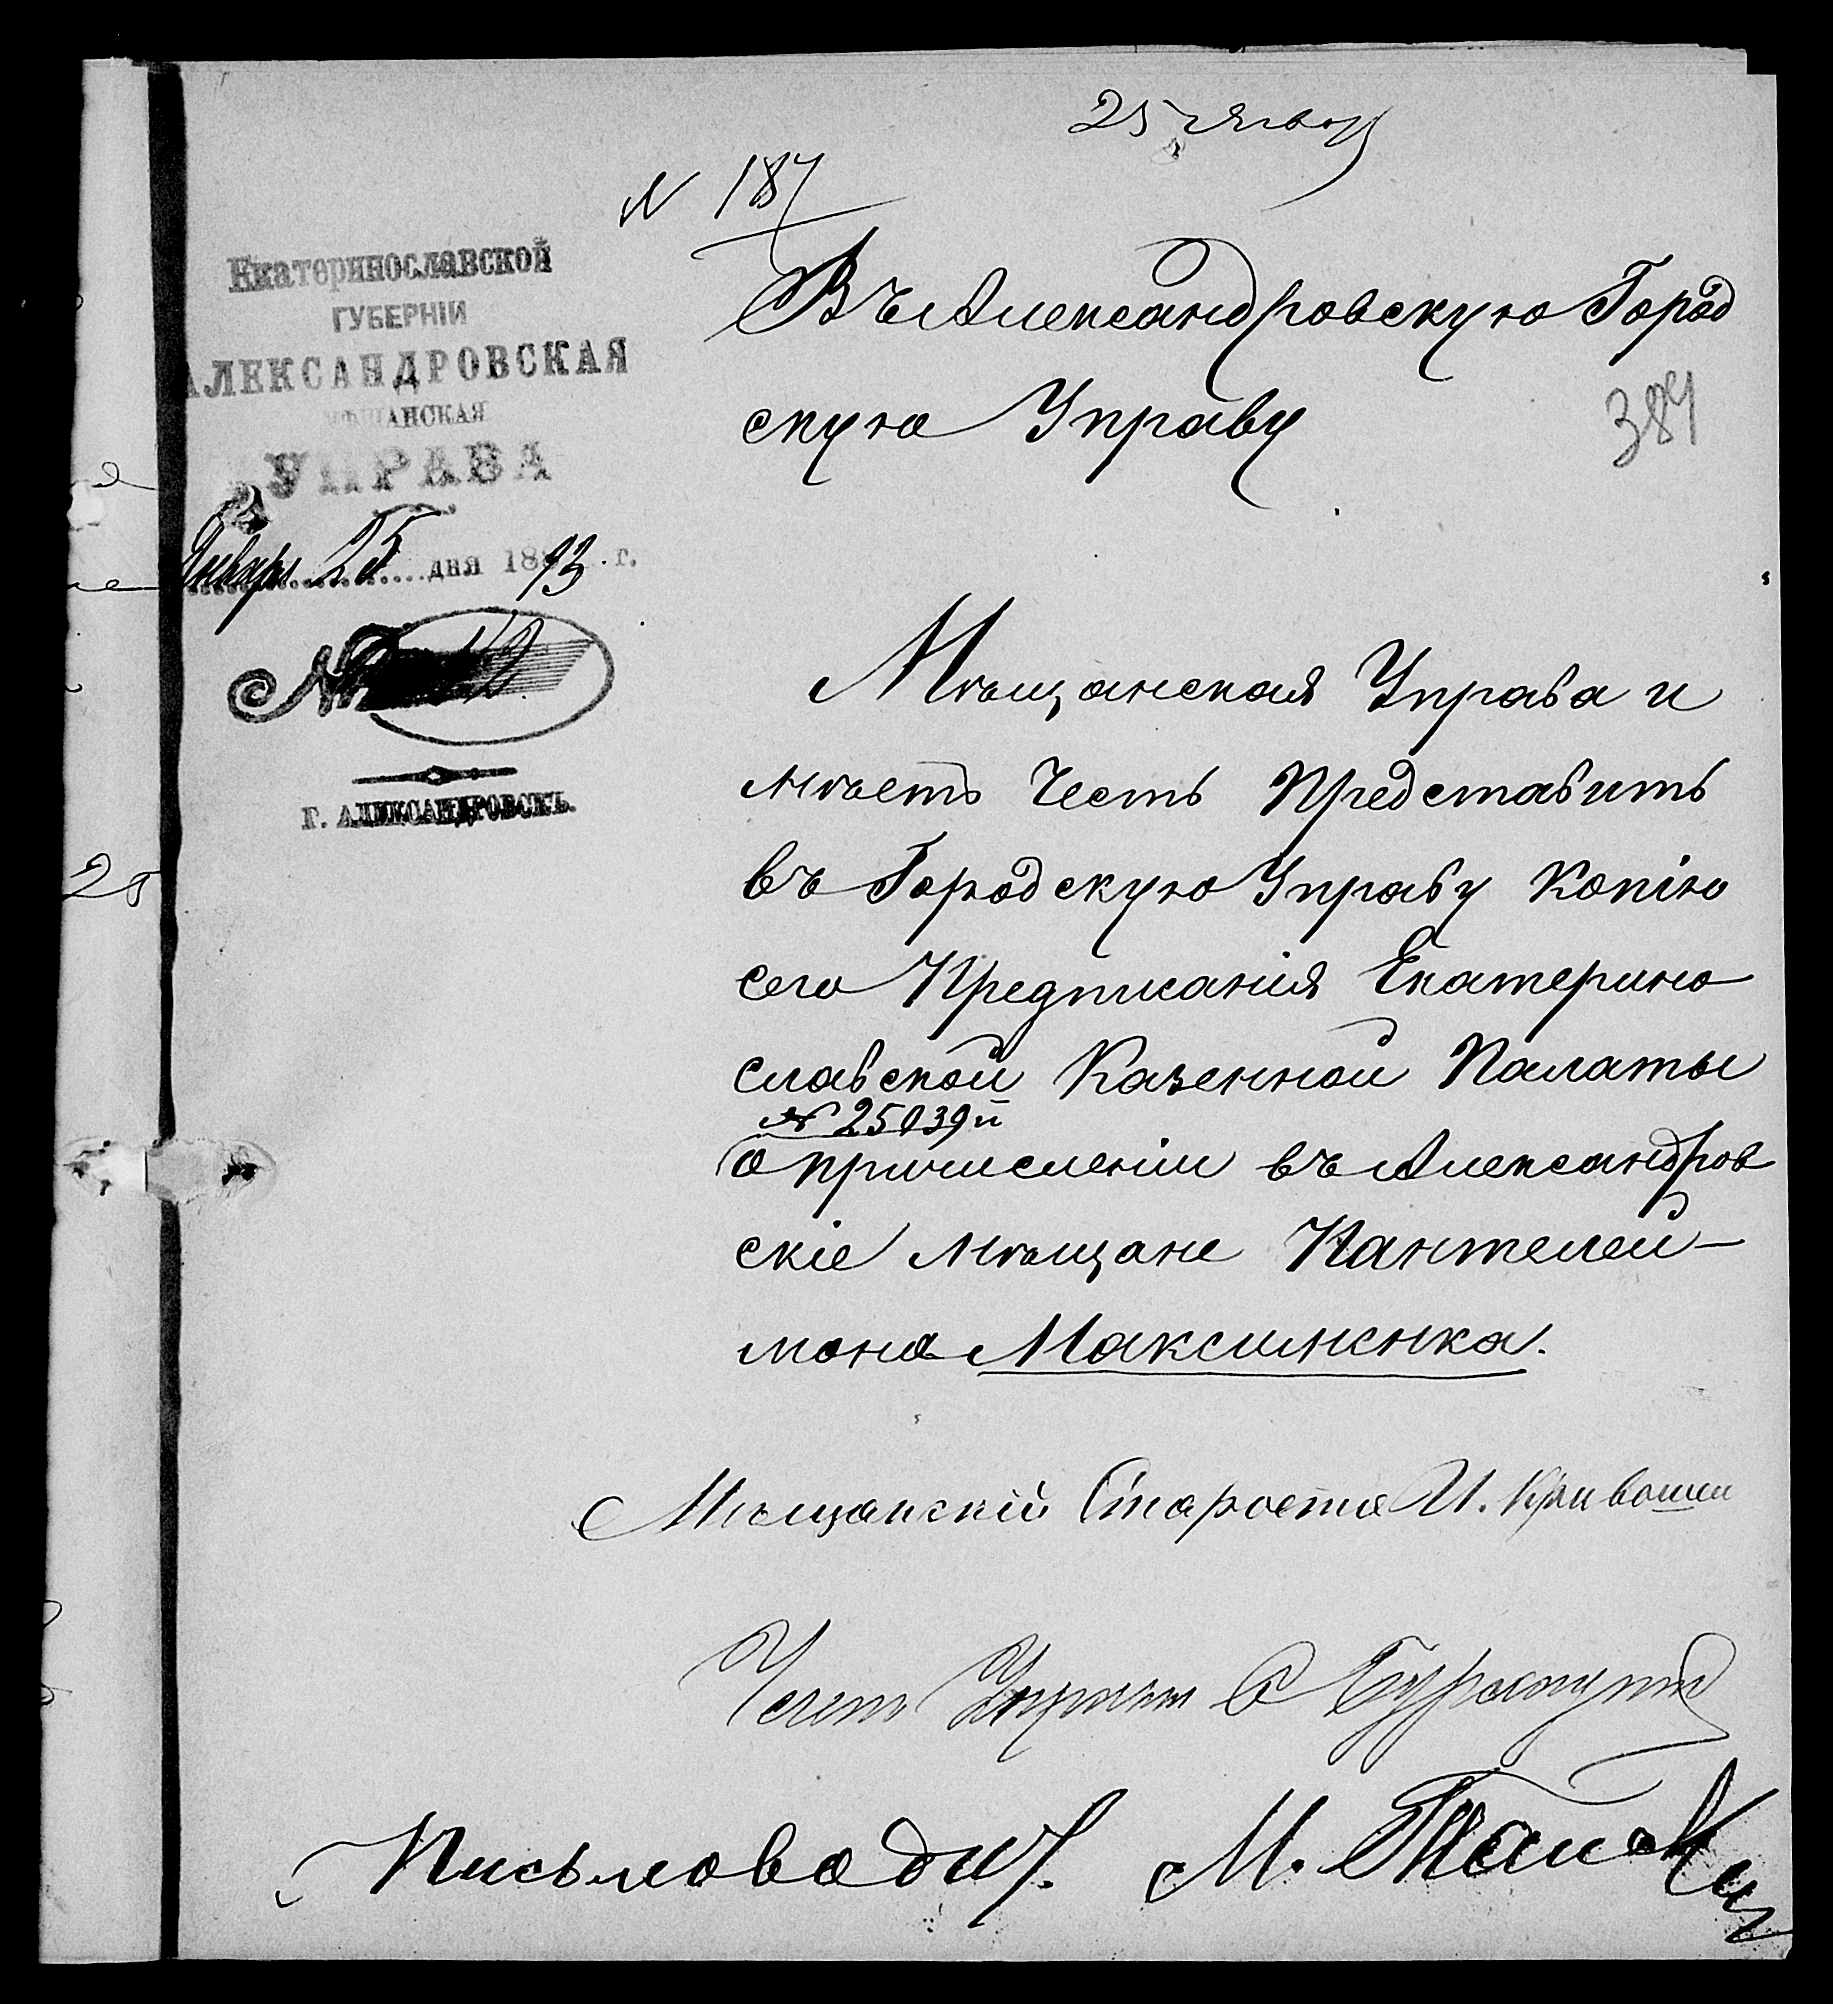 25 Январ
N 187
Екатеринославской
ГУБЕРНІИ
АЛЕКСАНДРОВСКАЯ
МѢЩАНСКАЯ
УПРАВА
Января 25 дня 1893 г.
№
Г. АЛЕКСАНДРОВСКЪ.
Въ Александровскую Город
скую Управу
384
Мѣщанская Управа и
мѣетъ Честь Представить
въ Городскую Управу Копію
сего Предписанія Екатерино
славской Казенной Палаты
№ 25039й
о причисленіи въ Александров
скіе мѣщане Пантелей-
мона Максименка.
Мѣщанскій Староста И. Кривошеи
Членъ Управы С
Письмоводит. М.
25